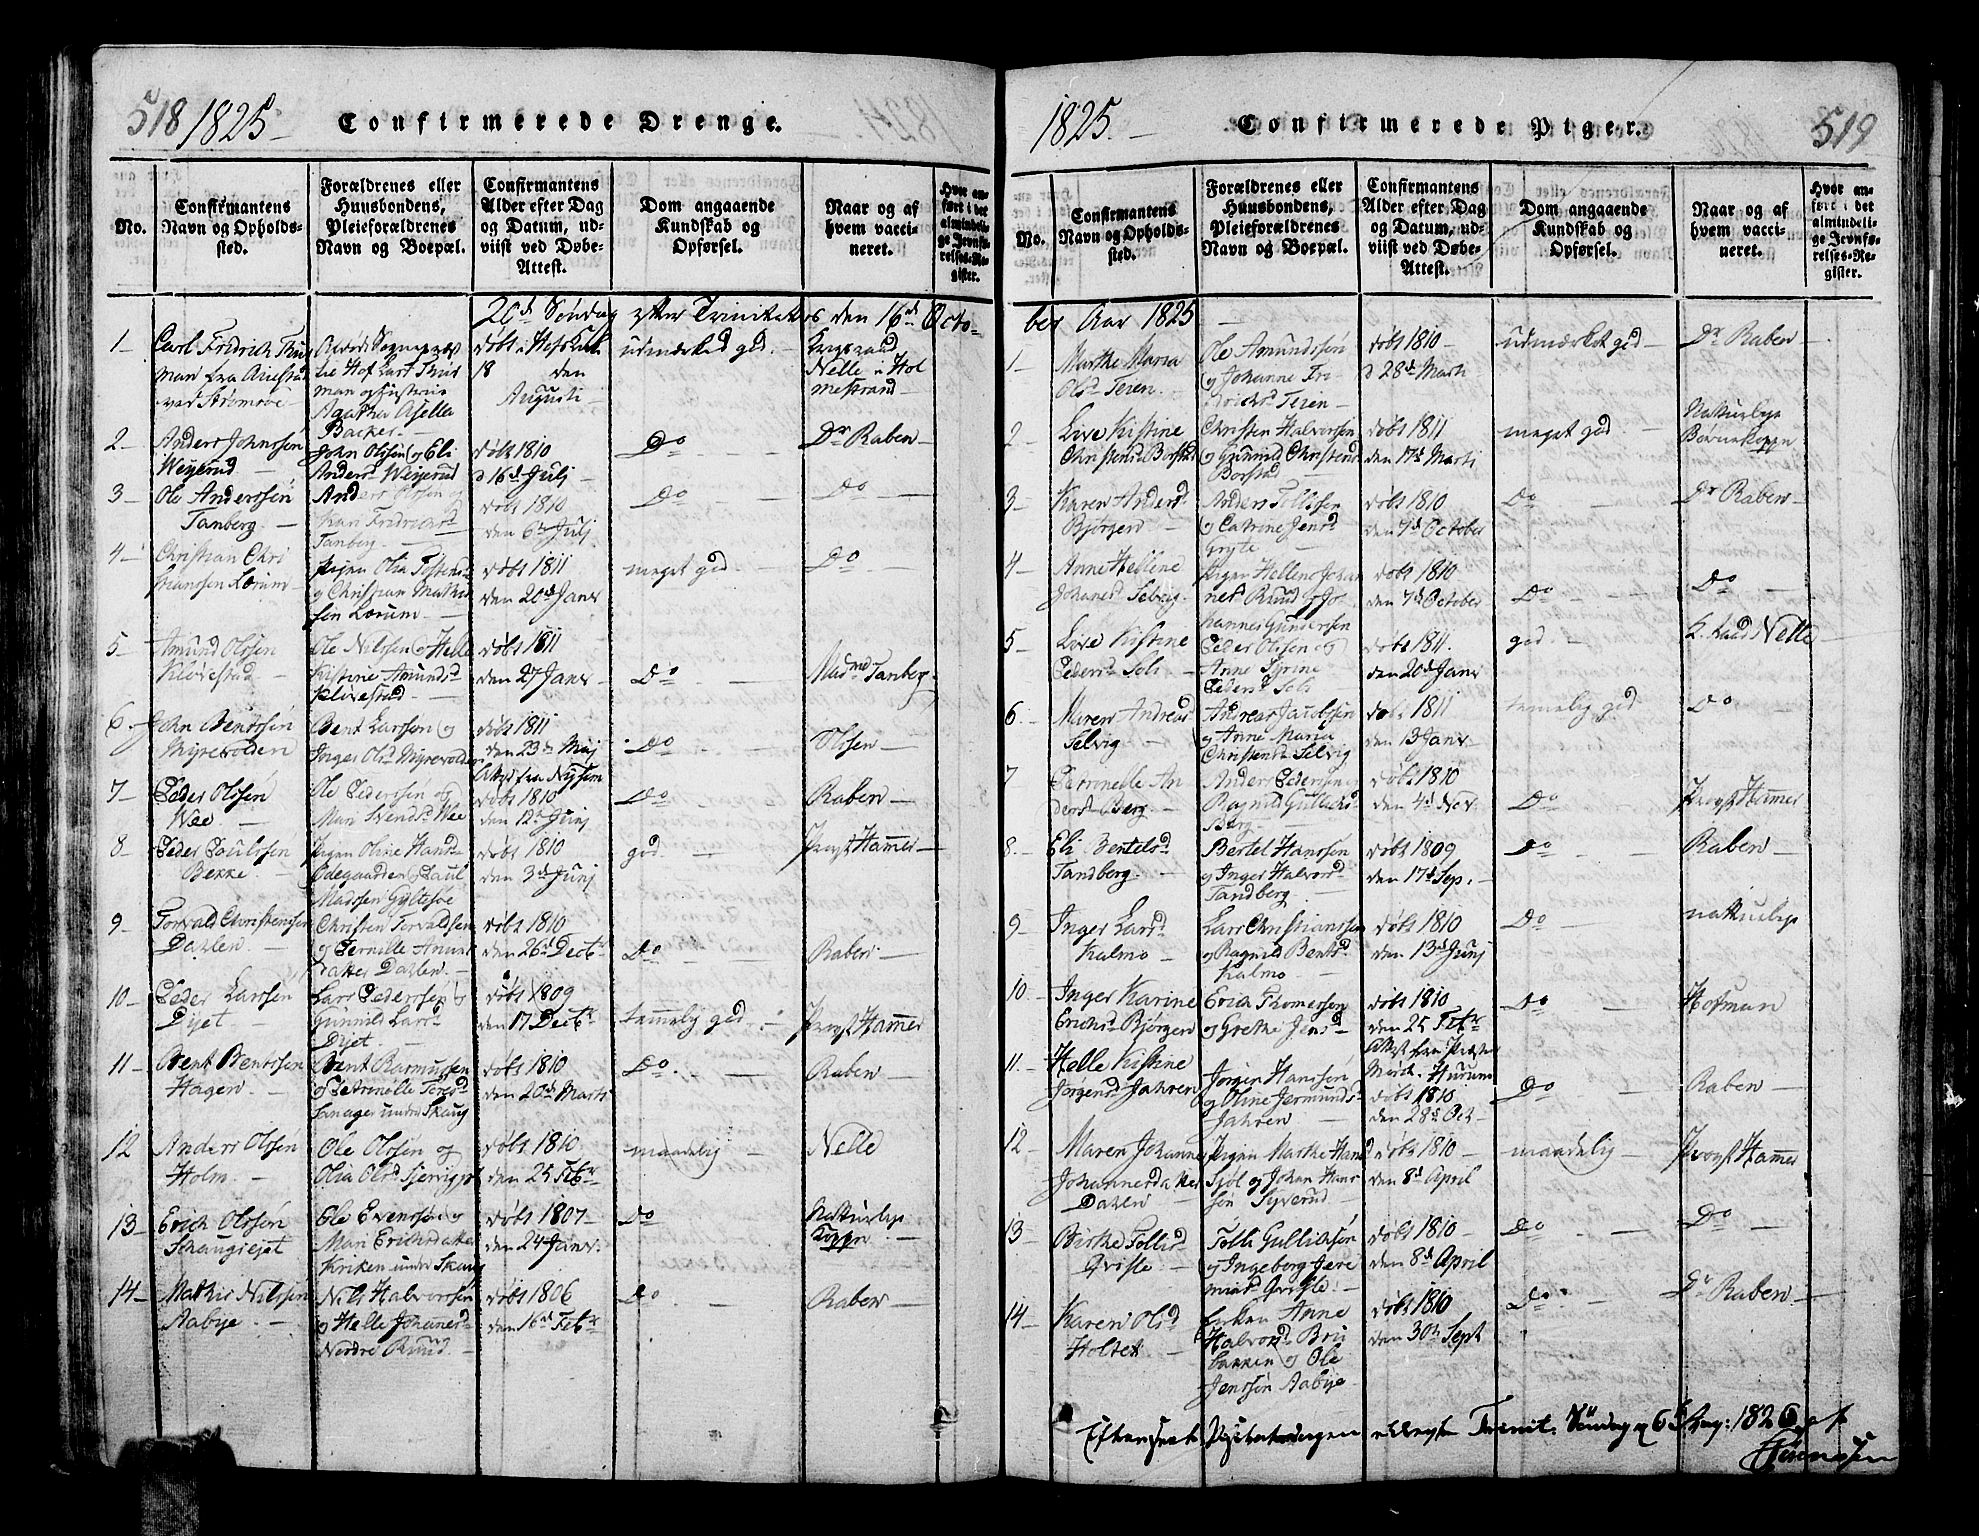 518 1825 Confirmerede Drenge.
No.
Confirmantens
Navn og Opholds-
sted.
Forældrenes eller
Huusbondens,
Pleieforældrenes
Navn og Boepæl.
Confirmantens
Alder efter Dag
og Datum, ud-
viist ved Døbe-
Attest.
Dom angaaende
Kundskab og
Opførsel.
Naar og af
hvem vacci-
neret.
Hvor an-
ført i det
almindeli-
ge Jevnfø-
relses-Re-
gister.
20de Søndag efter Trinitatis den 16de Octo-
1
Carl Fridrich Thur
man fra
ved Strømsøe
man og Hustrue
Agatha
Backer
18 den
Augusti
udmærked god
Nelle i Hol
mestrand
2
Anders Johnssøn
Weyerud
John Olssøn og Eli
Anders Weyerud
døbt 1810
d 16de Julj
Do
Dr Raben
3
Ole Anderssøn
Tanberg
Anders Olssøn og
Kari Fridrichsd
Tanberg
døbt 1810
den 6te Julj
Do
Do
4
Christian Chri
stianssen Lerum
Pigen Olia Tostens
og Christian Mathis
sen Lerum
døbt 1811
den 20de Janr
meget god
Do
5
Amund Olssen
Kløvestad
Ole Nilssen og Helle
Kistine Amunds
Kløvestad
døbt 1811
den 27 Janr
Do
Madm Tanberg
6
John Bentssøn
Myrevolden
Bent Larssøn og
Inger Olsd Myrevolden
døbt 1811
den 23de Maj
Do
Olsen
7
Peder Olssøn
Wee
Ole Pederssøn og
Mari Svends Wee
døbt 1810
den 12te Junj
Do
Raben
8
Peder Poulssen
Bekke
Pigen Oline Hans
Ødegaarden og Paul
Madssen Gyltesøe
døbt 1810
den 3de Junj
god
Provst Hamer
9
Torvald Christenssen
Dahlen
Christen Torvaldsen
og Pernille Amunds
datter Dahlen
døbt 1810
den 26de Decbr
Do
Raben
10
Peder Larssøn
Dyet
Lars Pederssøn og
Gunnild Lars
Dyet
døbt 1809
den 17 Decbr
temmelig god
Provst Hamer
11
Bent Bentssen
Hagen
Bent Rasmussen
og Petronelle Peders
under Skaug
døbt 1810
den 20de Marts
Do
Raben
12
Anders Olssøn
Holm
Ole Olssøn og
Olia Ols
døbt 1810
den 25 Febr
maadelig
Nelle
13
Erich Olssøn
Ole Evenssøn og
Mari Erichsdatter
under Skaug
døbt 1807
den 24 Janr
Do
Naturlige
Kopper
14
Mathis Nilssøn
Aabye
Nils Halvorssøn
og Helle Johanes
Nordre Ruud
døbt 1806
den 16de Febr
Do
Raben
1825 Confirmerede Piger. 519
No.
Confirmantens
Navn og Opholds-
sted.
Forældrenes eller
Huusbondens,
Pleieforældrenes
Navn og Boepæl.
Confirmantens
Alder efter Dag
og Datum, ud-
viist ved Døbe-
Attest.
Dom angaaende
Kundskab og
Opførsel.
Naar og af
hvem vacci-
neret.
Hvor an-
ført i det
almindeli-
ge Jevnfø-
relses-Re-
gister.
ber Aar 1825
1
Marthe Maria
Olsd Teren
Ole Amundssøn
og Johanne Fri
drichsd Teren
døbt 1810
d 28de Marti
udmærket god
Dr Raben
2
Live Kistine
Christensd Borstad
Christen Halvorssen
og Gunild Christens
Borstad
døbt 1811
den 17de Marti
meget god
Naturlige
Børnekopper
3
Karen Anders
Bjørgen
Anders Tollssen
og Catrine Jens
Gryte
døbt 1810
den 7de October
Do
Dr Raben
4
Anne Hellene
Johanes Selvig
Pigen Hellene Johan
nes Ruud og Jo
hannes Gunderssen
døbt 1810
den 7de October
Do
Do
5
Live Kistine
Peders Soli
Peder Olssen og
Anne
Peders Soli
døbt 1811
den 20de Janr
god
Nelle
6
Maren Andreas
Selvig
Andreas Jacobssen
og Anne Maria
Christensd Selvig
døbt 1811
den 13 Janr
temelig god
Do
7
Petronelle An
dersd Berg
Anders Pederssen
Ragnild Gulbrands
Berg
døbt 1810
den 4de Nov
Do
Provst Hamer
8
Eli Bertels
Tandberg
Bertel Hanssøn
og Inger Halvors
Tandberg
døbt 1809
den 17de Sep.
Do
Raben
9
Inger Lars
Kalmo
Lars Christianssen
og Ragnild Bents
Kalmo
døbt 1810
den 13de Junj
Do
naturlige
10
Inger Karine
Erichs Bjørgen
Erich Thomessen
og Grethe Jens
døbt 1810
den 25 Febr
Do
Hofman
11
Helle Kistine
Jørgens Jahren
Jørgen Hanssøn
og Oline Jermunds
Jahren
Attest fra Præsten
Hurum
døbt 1810
den 28de Oct
Do
Raben
12
Maren Johanne
Johannesdatter
Dahlen
Pigen Marthe Hans
og Johan Hans
søn Syverud
døbt 1810
den 8de April
maadelig
Provst Hamer
13
Birthe Tollis
Grisle
Tolli Gullikssøn
og Ingeborg Jere
miasd Grisle
døbt 1810
den 8de April
Do
Do
14
Karen Olsd
Holtet
Enken Anne
Halvors Bru
bakken og Ole
Jenssøn Aabye
døbt 1810
den 30te Sept
Do
Dr Raben
Efterseet Visitatsdagen Trinit. Søndag 6 Aug: 1826 af
Sørenssen